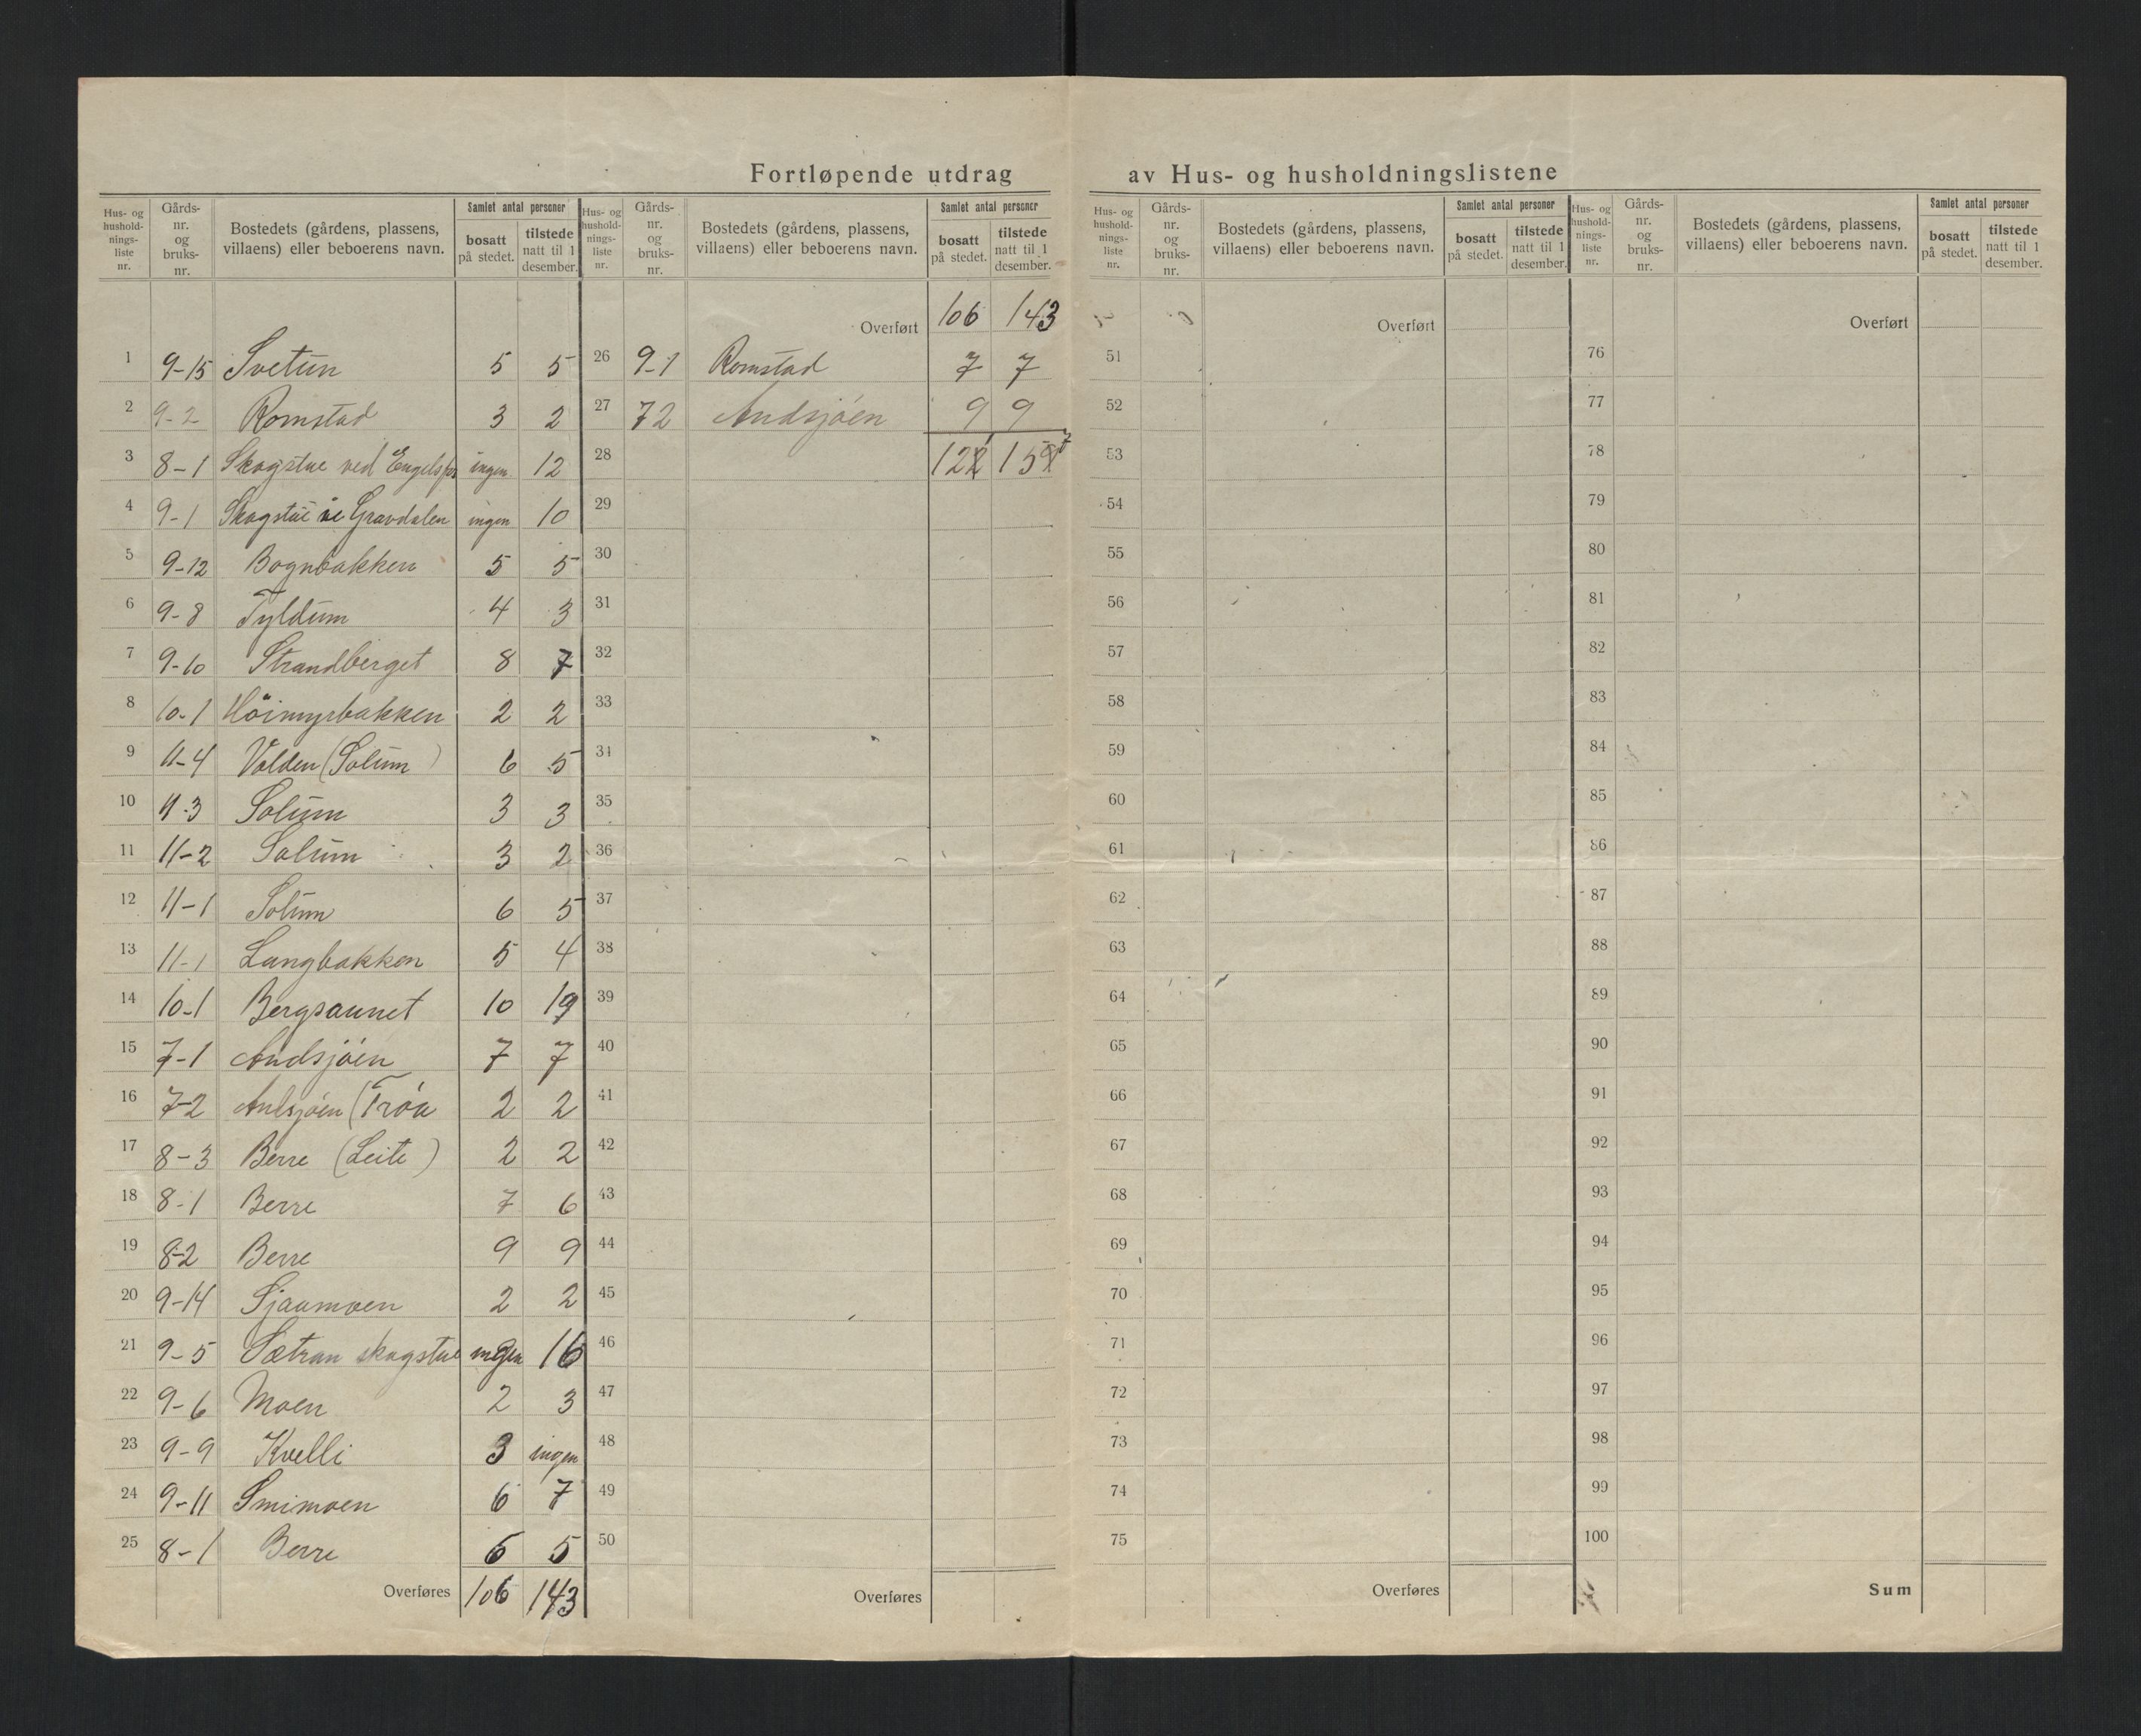 Fortløpende utdrag av Hus- og husholdningslistene
Hus- og hushold-nings-liste nr. Gårds-nr. og bruks-nr. Bostedets (gårdens, plassens, villaens) eller beboerens navn. Samlet antal personer bosatt på stedet. tilstede natt til 1 desember.
1 9-15 Svetun 5 5
2 9-2 Romstad 3 2
3 8-1 Skogstue ved ingen 12
4 9-1 Skogstue Gravdalen ingen 10
5 9-12 Bognbakken 5 5
6 9-8 Tyldum 4 3
7 9-10 Strandberget 8 7
8 10-1 Höimyrbakken 2 2
9 11-4 Volden (Solum) 6 5
10 11-3 Solum 3 3
11 11-2 Solum 3 2
12 11-1 Solum 6 5
13 11-1 Langbakken 5 4
14 10-1 Bergsaunet 10 19
15 7-1 Andsjöen 7 7
16 7-2 (Tröa 2 2
17 8-3 Berre (Leite) 2 2
18 8-1 Berre 7 6
19 8-2 Berre 9 9
20 9-14 Sjaamoen 2 2
21 9-5 Sætran skogstue ingen 16
22 9-6 Moen 2 3
23 9-9 Kvelli 3 ingen
24 9-11 Smimoen 6 7
25 8-1 Berre 6 5
Overføres 106 143
Hus- og hushold-nings-liste nr. Gårds-nr. og bruks-nr. Bostedets (gårdens, plassens, villaens) eller beboerens navn. Samlet antal personer bosatt på stedet. tilstede natt til 1 desember.
Overført 106 143
26 9-1 Romstad 7 7
27 72 Andsjöen 9 9
28
29
30
31
32
33
34
35
36
37
38
39
40
41
42
43
44
45
46
47
48
49
50
Overføres
Hus- og hushold-nings-liste nr. Gårds-nr. og bruks-nr. Bostedets (gårdens, plassens, villaens) eller beboerens navn. Samlet antal personer bosatt på stedet. tilstede natt til 1 desember.
Overført
51
52
53
54
55
56
57
58
59
60
61
62
63
64
65
66
67
68
69
70
71
72
73
74
75
Overføres
Hus- og hushold-nings-liste nr. Gårds-nr. og bruks-nr. Bostedets (gårdens, plassens, villaens) eller beboerens navn. Samlet antal personer bosatt på stedet. tilstede natt til 1 desember.
Overført
76
77
78
79
80
81
82
83
84
85
86
87
88
89
90
91
92
93
94
95
96
97
98
99
100
Sum